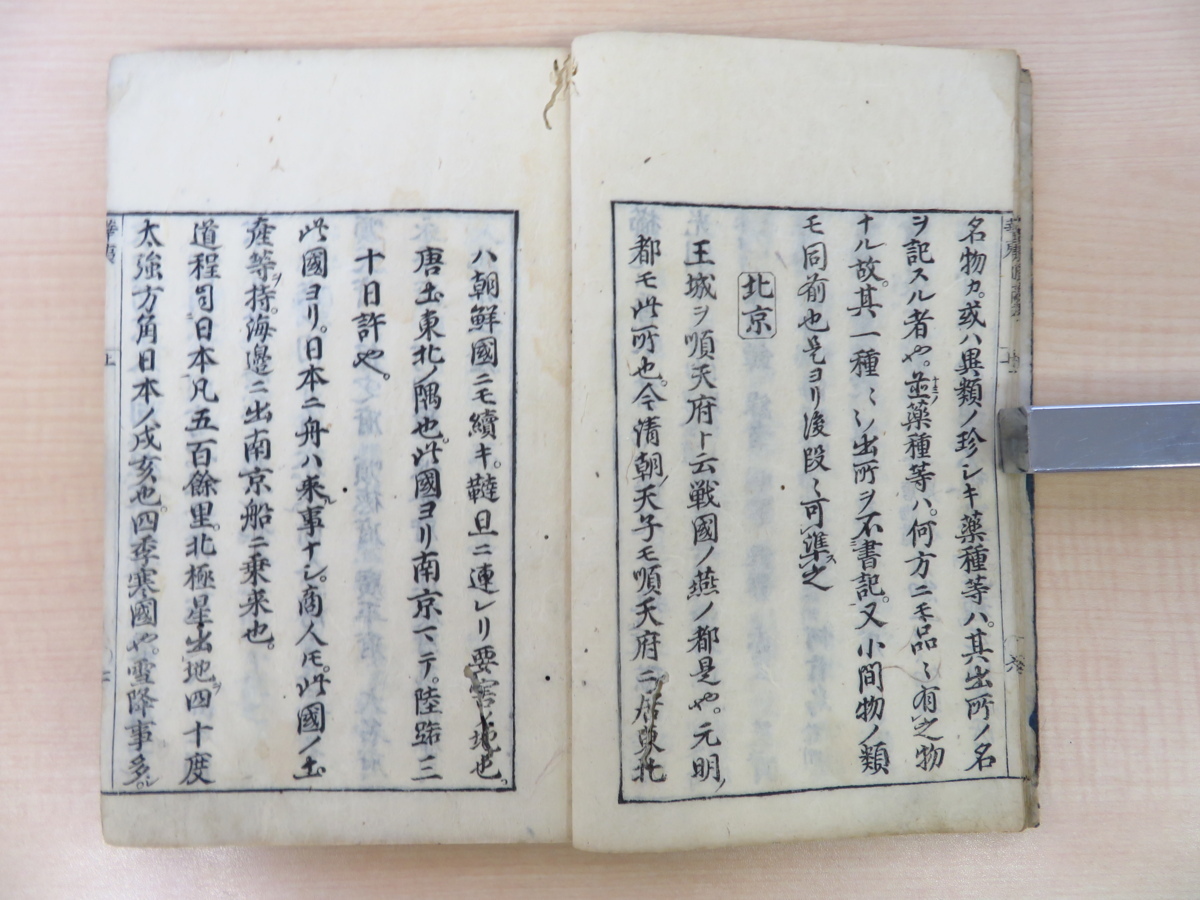 名物カ。或ハ異類ノ珍シキ藥種等ハ。其出所ノ名
ヲ記スル者也。並藥種等ハ。何方ニモ品〻有之物
ナル故。其一種〻ノ出所ヲ不書記。又小間物ノ類
モ同前也是ヨリ後段〻可準之
北京
王城ヲ順天府ト云戦國ノ燕ノ都是也。元明ノ
都モ此所也。今清朝ノ天子モ順天府ニ居東北
ハ朝鮮國ニモ續キ。韃旦ニ連レリ要害ノ地也。
唐土東北ノ隅也。此國ヨリ南京マテ。陸路三
十日許也。
此國ヨリ。日本ニ舟ハ来ル事ナシ。商人モ。此國ノ土
産等ヲ持。海邉ニ出南京船ニ乗来也。
道程自日本凡五百餘里。北極星出地四十度
太強方角日本ノ戌亥也。四季寒國也。雪降事多シ。